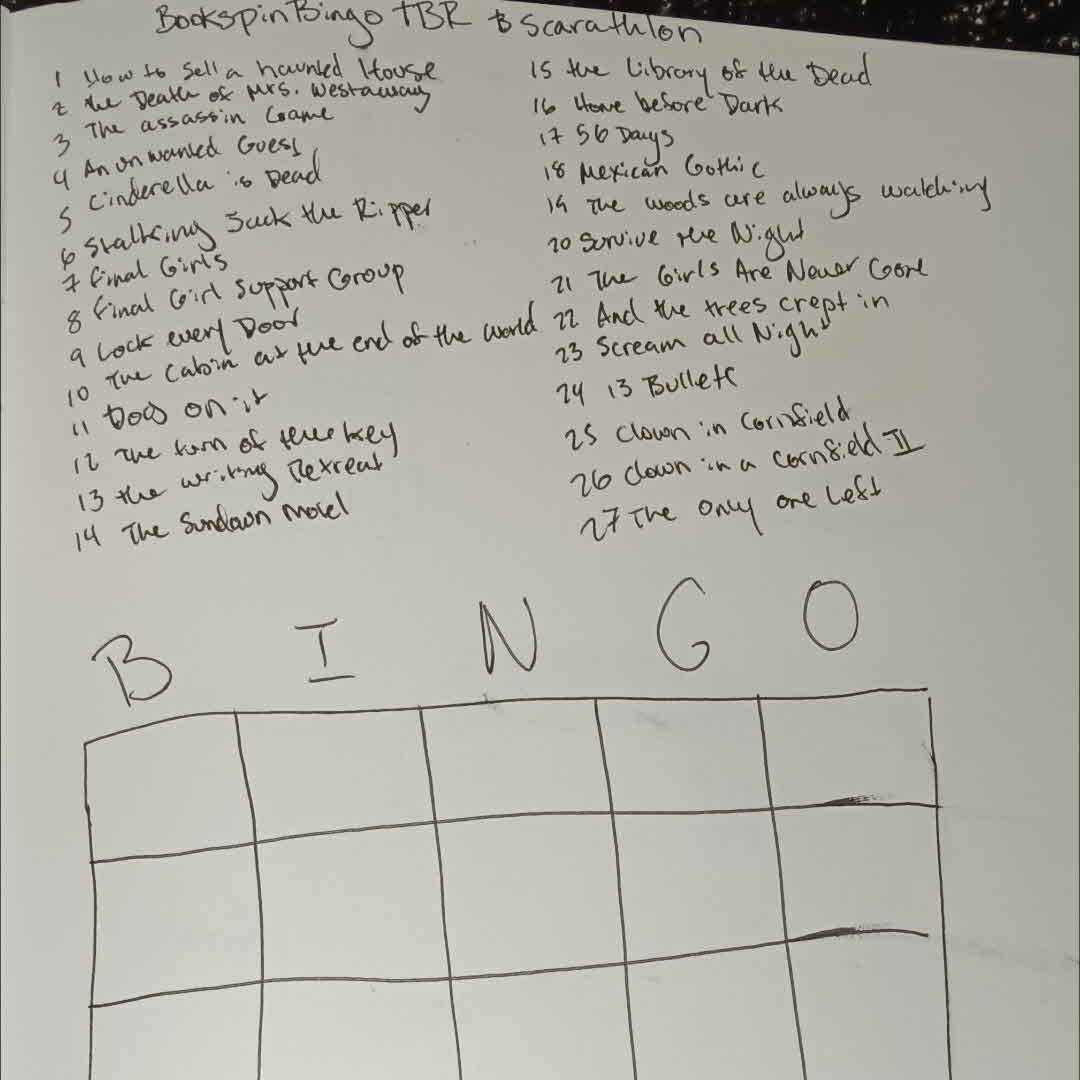 BookspinBingo TBR & Scarathlon
1 How to Sell a haunted House
2 the Death of Mrs. Westaway
3 The assassin Game
4 An unwanted Guest
5 Cinderella is Dead
6 Stalking Jack the Ripper
7 Final Girls
8 Final Girl Support Group
9 Lock every Door
10 The Cabin at the end of the world
11 Dog on it
12 The turn of the key
13 the writing Retreat
14 The Sundown Motel
15 the Library of the Dead
16 Home before Dark
17 56 Days
18 Mexican Gothic
19 The woods are always watching
20 Survive the Night
21 The Girls Are Never Gone
22 And the trees crept in
23 Scream all Night
24 13 Bullets
25 Clown in Cornfield
26 Clown in a Cornfield II
27 The only one Left
B I N G O